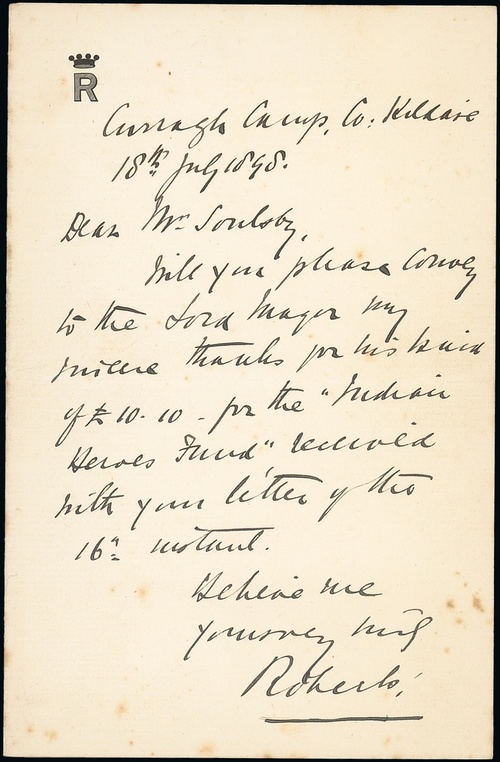 R
Curragh Camp, Co: Kildare
18th July 1898.
Dear Mr Soulsby,
Will you please convey
to the Lord Mayor my
sincere thanks for his kind
of £10.10 - for the "Indian
Heroes Fund" received
with your letter of the
16th instant.
Believe me
yours very truly
Roberts.